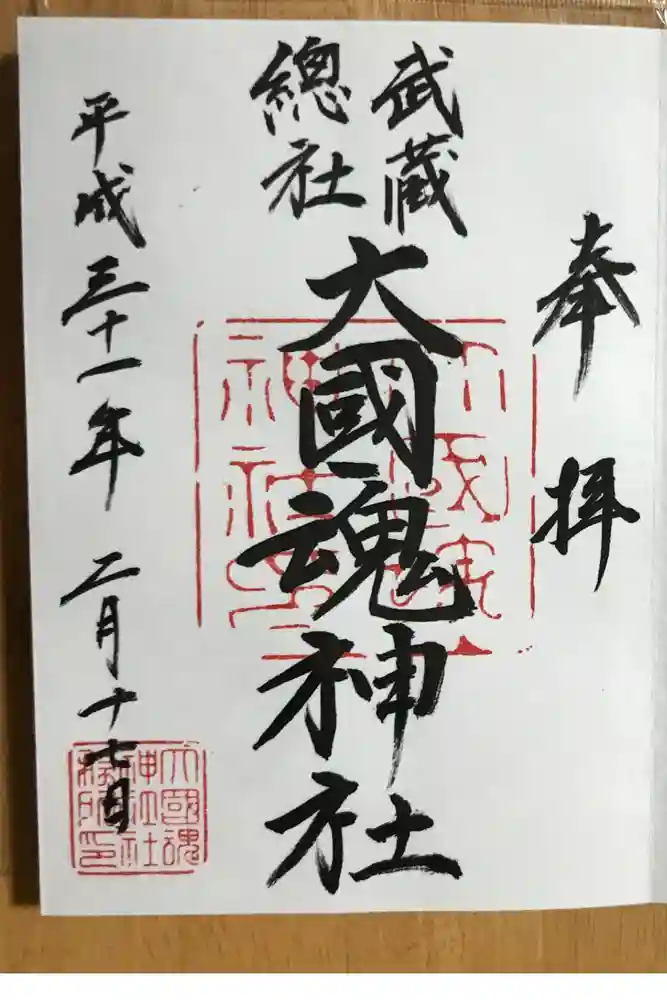 奉拝
武蔵
總社
大國魂神社
平成三十一年二月十七日
大國魂
神社社
務所印